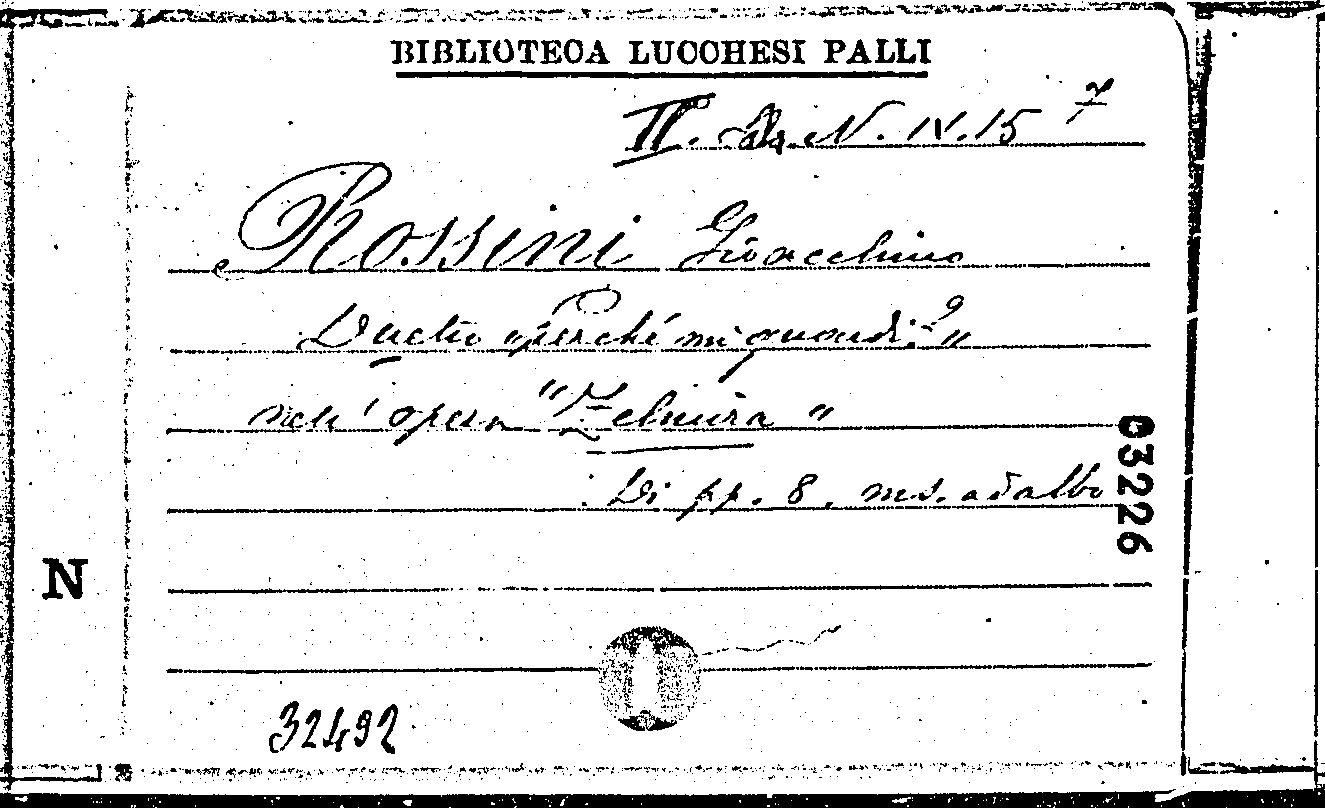 BIBLIOTECA LUCCHESI PALLI
II. N. IV. 15 7
Rossini Gioacchino
Duetto "perché mi guardi?"
nell'opera "Zelmira"
Di pp. 8. ms. ad albo
03226
N
32492